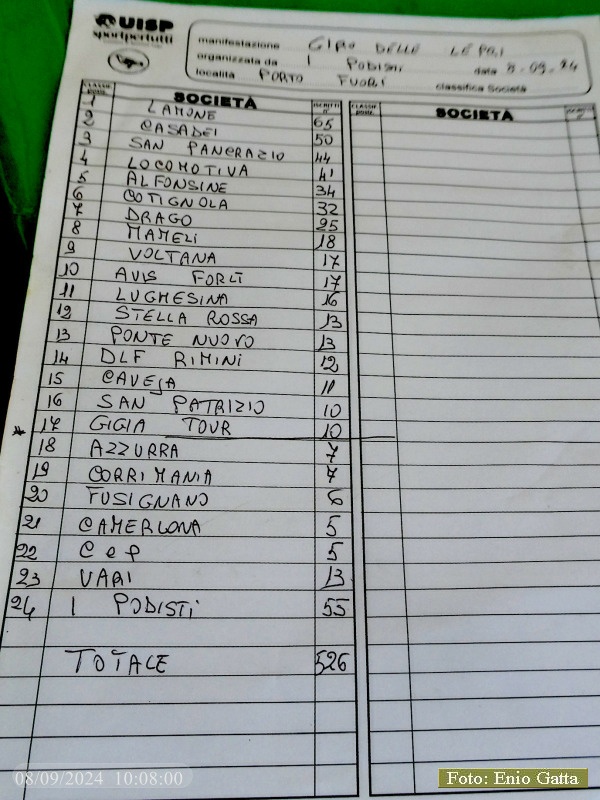 UISP
sportpertutti
manifestazione GIRO DELLE LEPRI
organizzata da I PODISTI data 8.09.24
località PORTO FUORI classifica Società
CLASSIF. SOCIETÀ ISCRITTI N° CLASSIF. SOCIETÀ
1 LAMONE 65
2 CASADEI 50
3 SAN PANCRAZIO 44
4 LOCOMOTIVA 41
5 ALFONSINE 34
6 COTIGNOLA 32
7 DRAGO 25
8 MAMELI 18
9 VOLTANA 17
10 AVIS FORLÌ 17
11 LUGHESINA 16
12 STELLA ROSSA 13
13 PONTE NUOVO 13
14 DLF RIMINI 12
15 CAVEJA 11
16 SAN PATRIZIO 10
* 17 GIGIA TOUR 10
18 AZZURRA 7
19 CORRIMANIA 7
20 FUSIGNANO 6
21 CAMERLONA 5
22 C e P 5
23 VARI 13
24 I PODISTI 55
TOTALE 526
08/09/2024 10:08:00
Foto: Enio Gatta